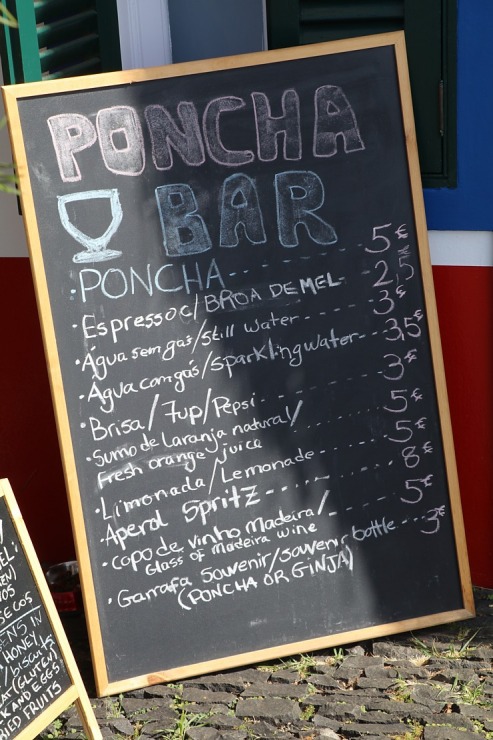 PONCHA
BAR
·PONCHA-------- 5€
·Espresso c/BROA DE MEL- 2,5
·Água sem gás/still water--- 3€
·Água com gás/sparkling water--- 3,5€
·Brisa/7up/Pepsi------ 3€
·Sumo de Laranja natural/ ------ 5€
Fresh orange juice
·Limonada/Lemonade------ 5€
·Aperol Spritz------ 8€
·copo de vinho Madeira/---- 5€
Glass of Madeira wine
·Garrafa Souvenir/souvenir bottle --- 3€
(PONCHA OR GINJA)
HONEY
(GLUTEN)
AND EGGS
FRUITS